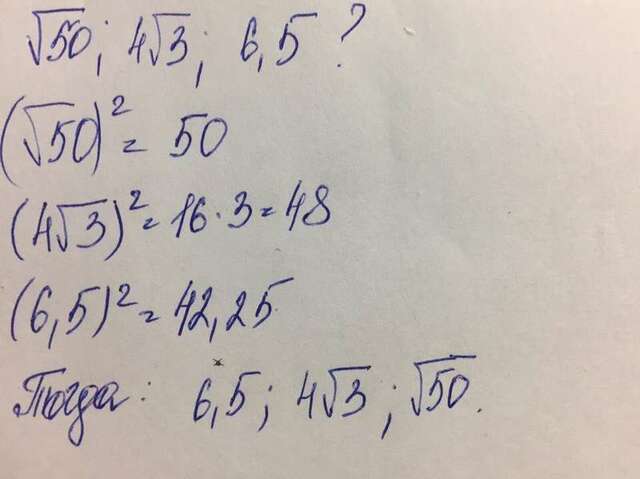 √50; 4√3; 6,5 ?
(√50)² = 50
(4√3)² = 16·3 = 48
(6,5)² = 42,25
Тогда: 6,5; 4√3; √50.